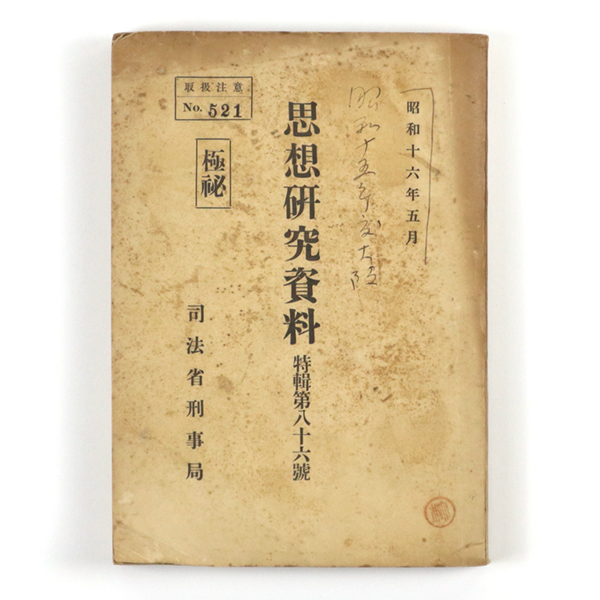 昭和十六年五月
昭和十五年度大阪
思想研究資料
特輯第八十六號
取扱注意
No. 521
極祕
司法省刑事局